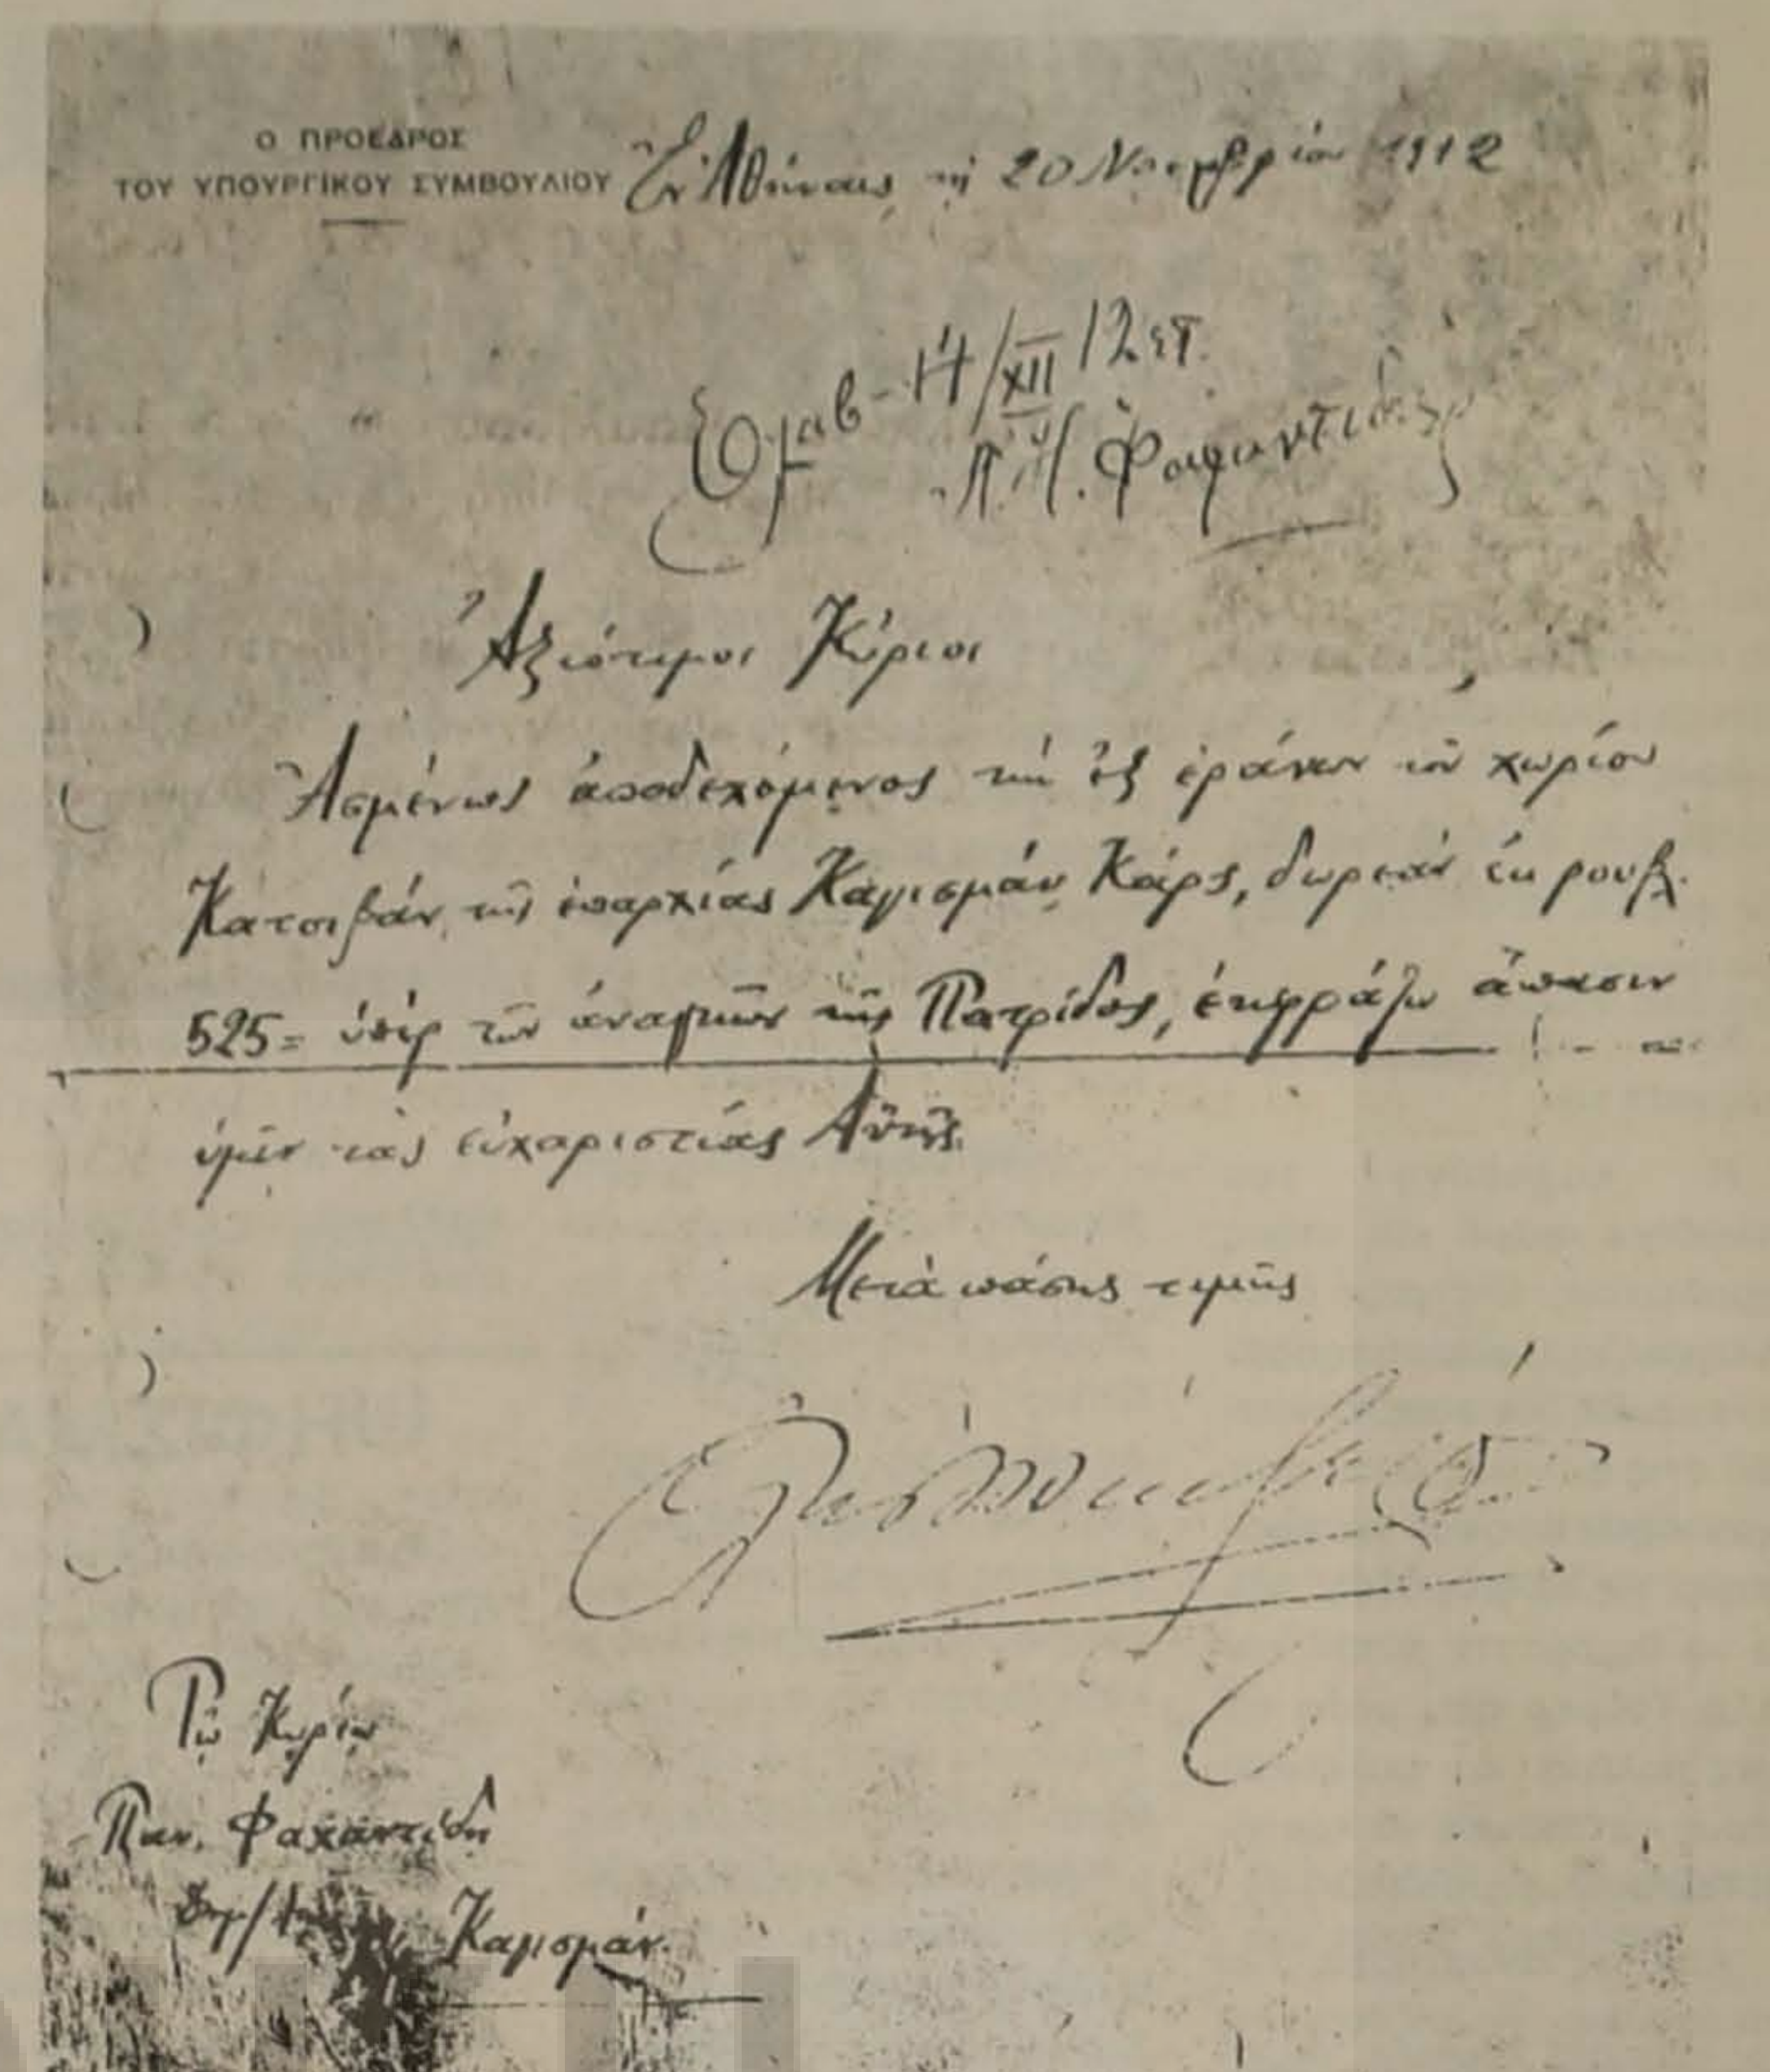 Ο ΠΡΟΕΔΡΟΣ
ΤΟΥ ΥΠΟΥΡΓΙΚΟΥ ΣΥΜΒΟΥΛΙΟΥ
Ἐν Ἀθήναις τῇ 20 Νοεμβρίου 1912
14/XII 12
Π. Φαχαντίδης
Ἀξιότιμοι Κύριοι
Ἀσμένως ἀποδεχόμενος τὴν ἐξ ἐράνων τοῦ χωρίου
Κατσιβάν, τῆς ἐπαρχίας Καγισμάν, Κάρς, δωρεὰν ἐκ ρουβλ.
525= ὑπὲρ τῶν ἀναγκῶν τῆς Πατρίδος, ἐκφράζω ἅπασιν
ὑμῖν τὰς εὐχαριστίας Αὐτῆς.
Μετὰ πάσης τιμῆς
Τῷ Κυρίῳ
Παν. Φαχαντίδη
Καγισμάν.